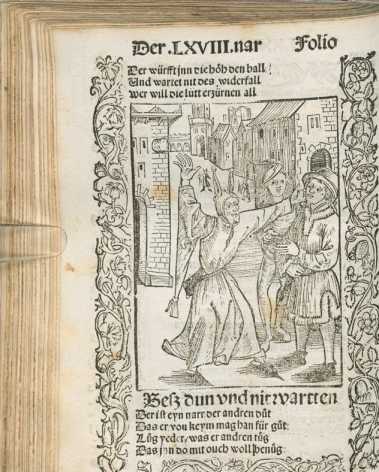 Der .LXVIII. nar Folio
Der würfft jnn die höh den ball
Vnd wartet nit des widerfall
Wer will die lütt erzürnen all
Besz dun vnd nit wartten
Der ist eyn narr der andren důt
Das er von keym mag han für gůt
Lůg yeder, was er andren tüg
Das jn do mit ouch woll benüg